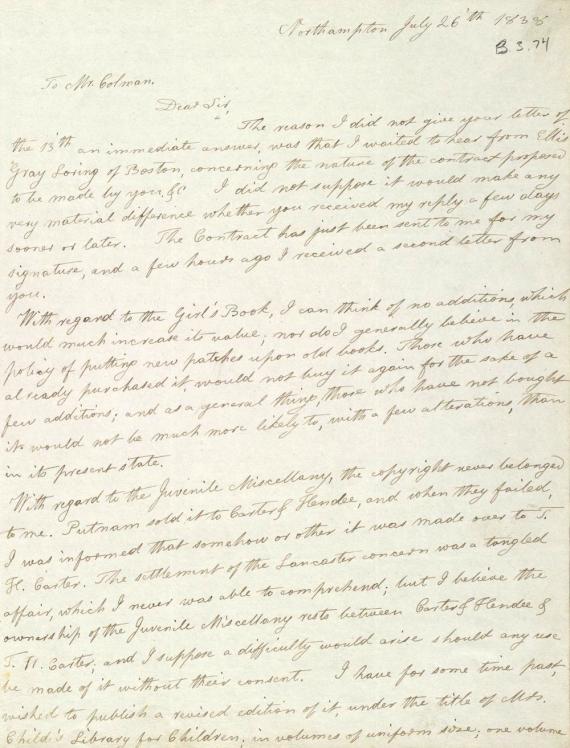 Northampton July 26'th 1838
B 3.74
To Mr. Colman.
Dear Sir,
The reason I did not give your letter of
the 13'th an immediate answer, was that I waited to hear from Ellis
Gray Loring of Boston, concerning the nature of the contract proposed
to be made by you, &c I did not suppose it would make any
very material difference whether you received my reply a few days
sooner or later. The Contract has just been sent to me for my
signature, and a few hours ago I received a second letter from
you.
With regard to the Girl's Book, I can think of no additions, which
would much increase its value; nor do I generally believe in the
policy of putting new patches upon old books. Those who have
already purchased it, would not buy it again for the sake of a
few additions; and as a general thing, those who have not bought
it would not be much more likely to, with a few alterations, than
in its present state.
With regard to the Juvenile Miscellany, the copyright never belonged
to me. Putnam sold it to Carter & Hendee, and when they failed,
I was informed that somehow or other it was made over to T.
H. Carter. The settlement of the Lancaster concern was a tangled
affair, which I never was able to comprehend; but I believe the
ownership of the Juvenile Miscellany rests between Carter & Hendee &
T. H. Carter; and I suppose a difficulty would arise should any use
be made of it without their consent. I have for some time past,
wished to publish a revised edition of it, under the title of Mrs.
Child's Library for Children; in volumes of uniform size; one volume